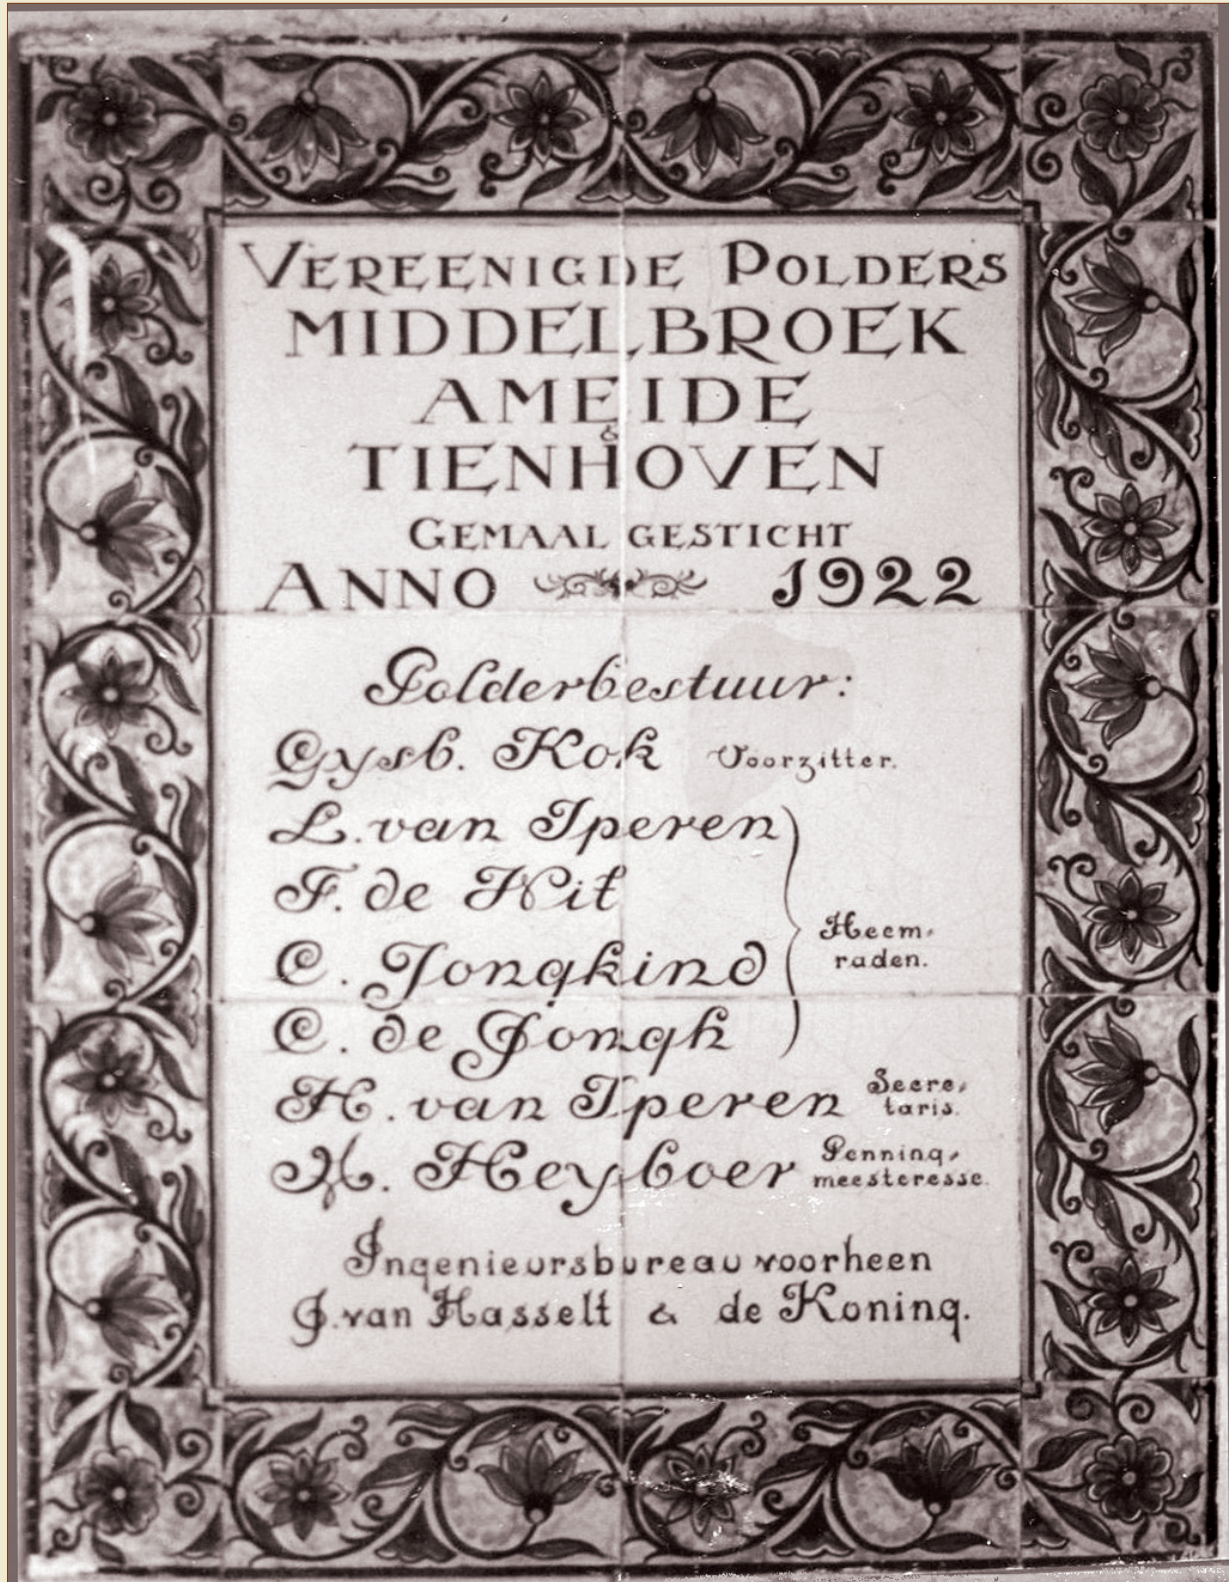 VEREENIGDE POLDERS
MIDDELBROEK
AMEIDE
&
TIENHOVEN
GEMAAL GESTICHT
ANNO 1922
Polderbestuur:
Gysb. Kok Voorzitter.
L. van Iperen
F. de Wit
C. Jongkind
Heem-
raden.
C. de Jongh
H. van Iperen Secre-
taris.
H. Heyboer Penning-
meesteresse.
Ingenieursbureau voorheen
J. van Hasselt & de Koning.